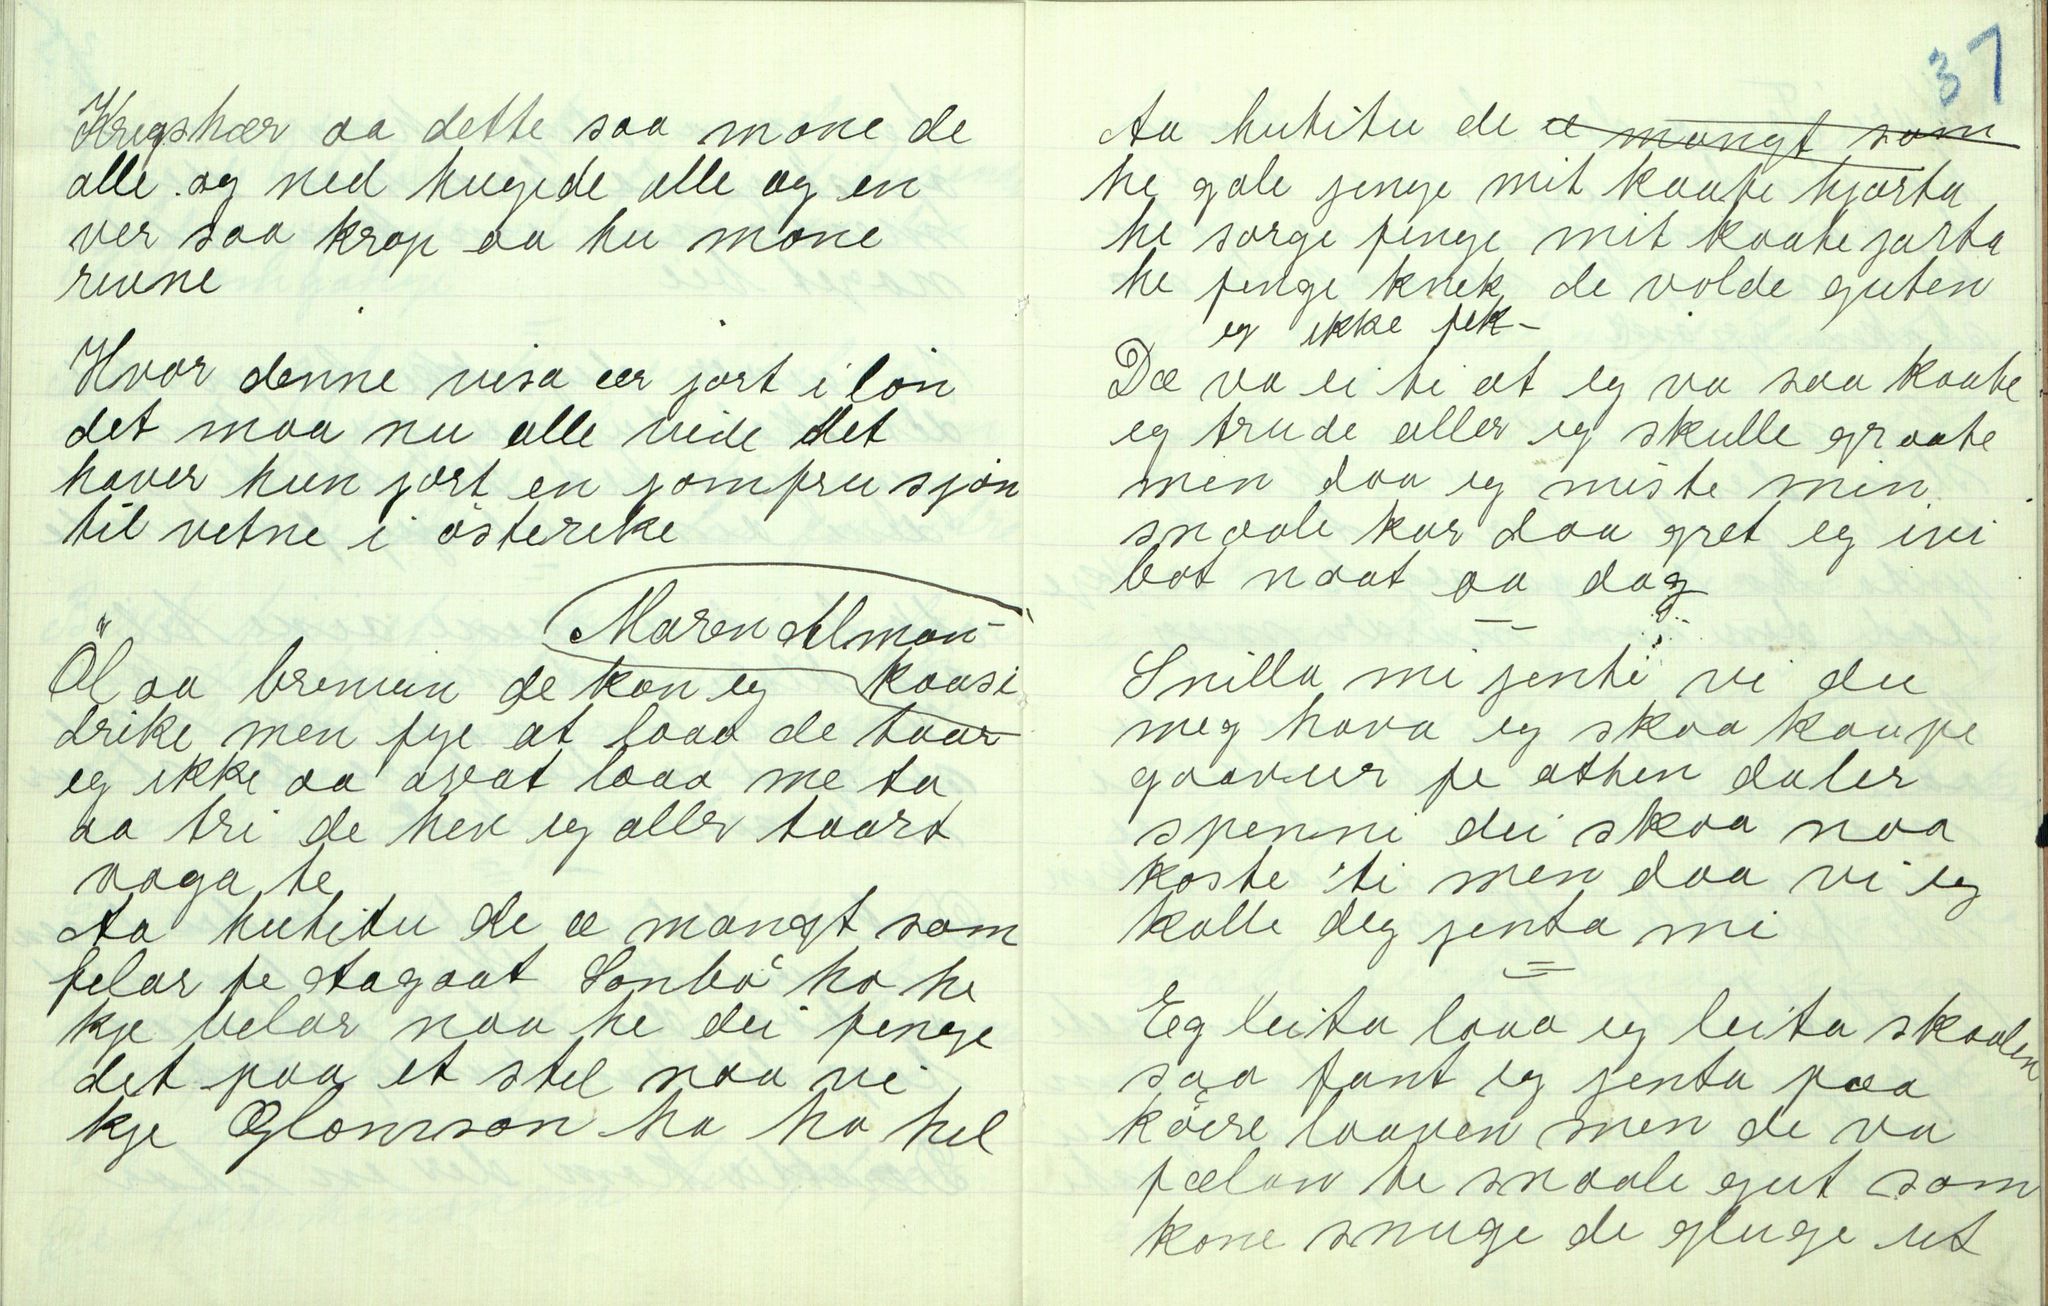 Krigshær aa dette saa mone de
alle og ned hugede alle og en
ver saa krop aa hu mone
revne
Hvor denne visa er jort i løn
det maa nu alle vide det
haver hun jort en jomfru sjøn
til vetne i østerike
Maren Alman-
kaasi
Öl aa bremvin de kan eg
drike men fye at laaa de taar
eg ikke aa areat laaa me ta
aa tri de hev eg aller taart
vaga te
Aa hutitu de æ mangt som
felar fe Aagaat Sønbø ho he
kje belar naa he dei finge
det paa et stel naa vi
kje Glomson ha ho hel
37
Aa hutitu de æ mangt som
he gale jenge mit kaate hjarta
he sorge finge mit kaate jarta
he finge knek de volde guten
eg ikke fik-
Dæ va ei ti at eg va saa kaate
eg trude aller eg skulle graate
men daa eg miste min
snaale kar daa gret eg ivi
bot naat aa dag
Snilla mi jenti vi du
meg hava eg skaa kaupe
gaavur fe athen daler
spenni dei skaa naa
koste ti men daa vi eg
kalle deg jenta mi
Eg leita laaa eg leita skaalen
saa fant eg jenta paa
köere laaven men de va
fælan te snaale gut som
kone snuge de gluge ut